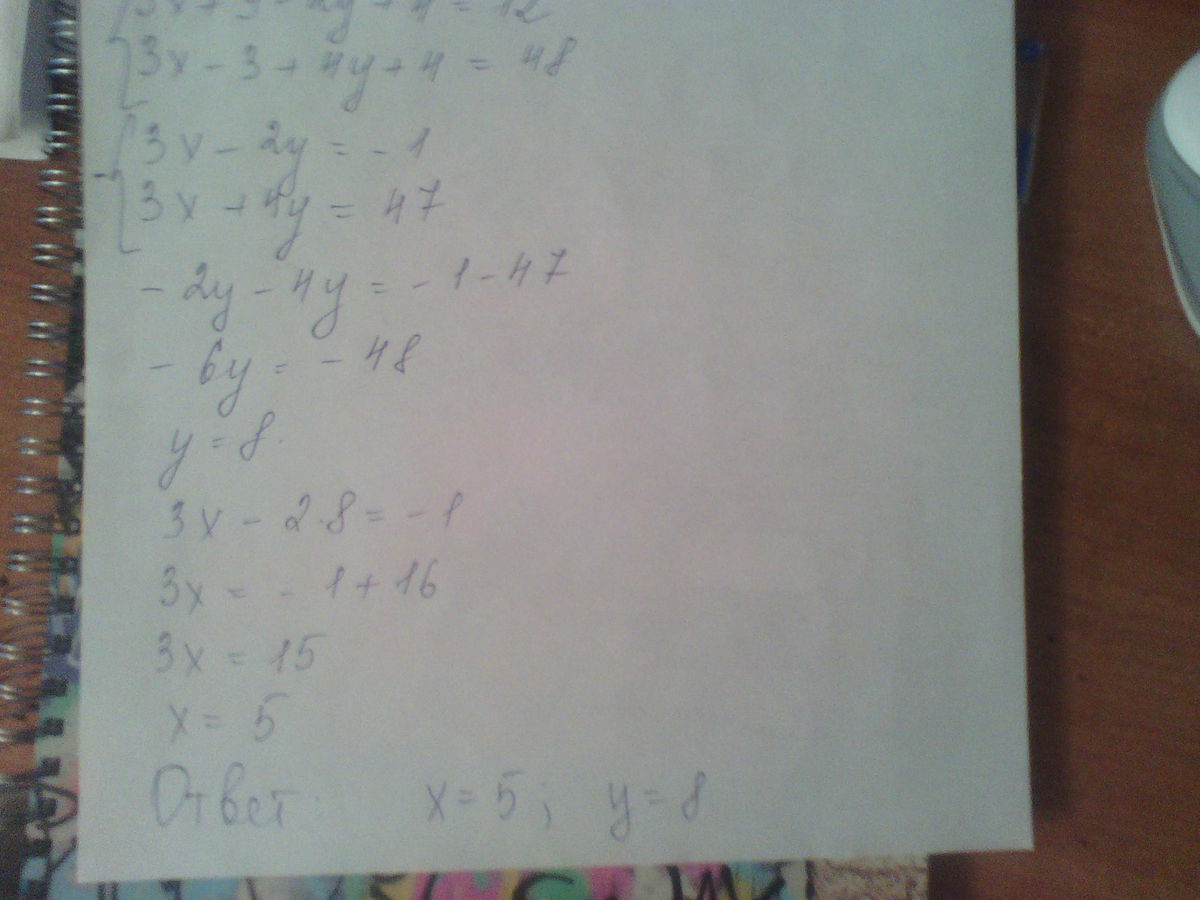 3x + 9 - 2y + 4 = 12
3x - 3 + 4y + 4 = 48
3x - 2y = - 1
3x + 4y = 47
- 2y - 4y = - 1 - 47
- 6y = - 48
y = 8.
3x - 2·8 = - 1
3x = - 1 + 16
3x = 15
x = 5
Ответ: x = 5; y = 8